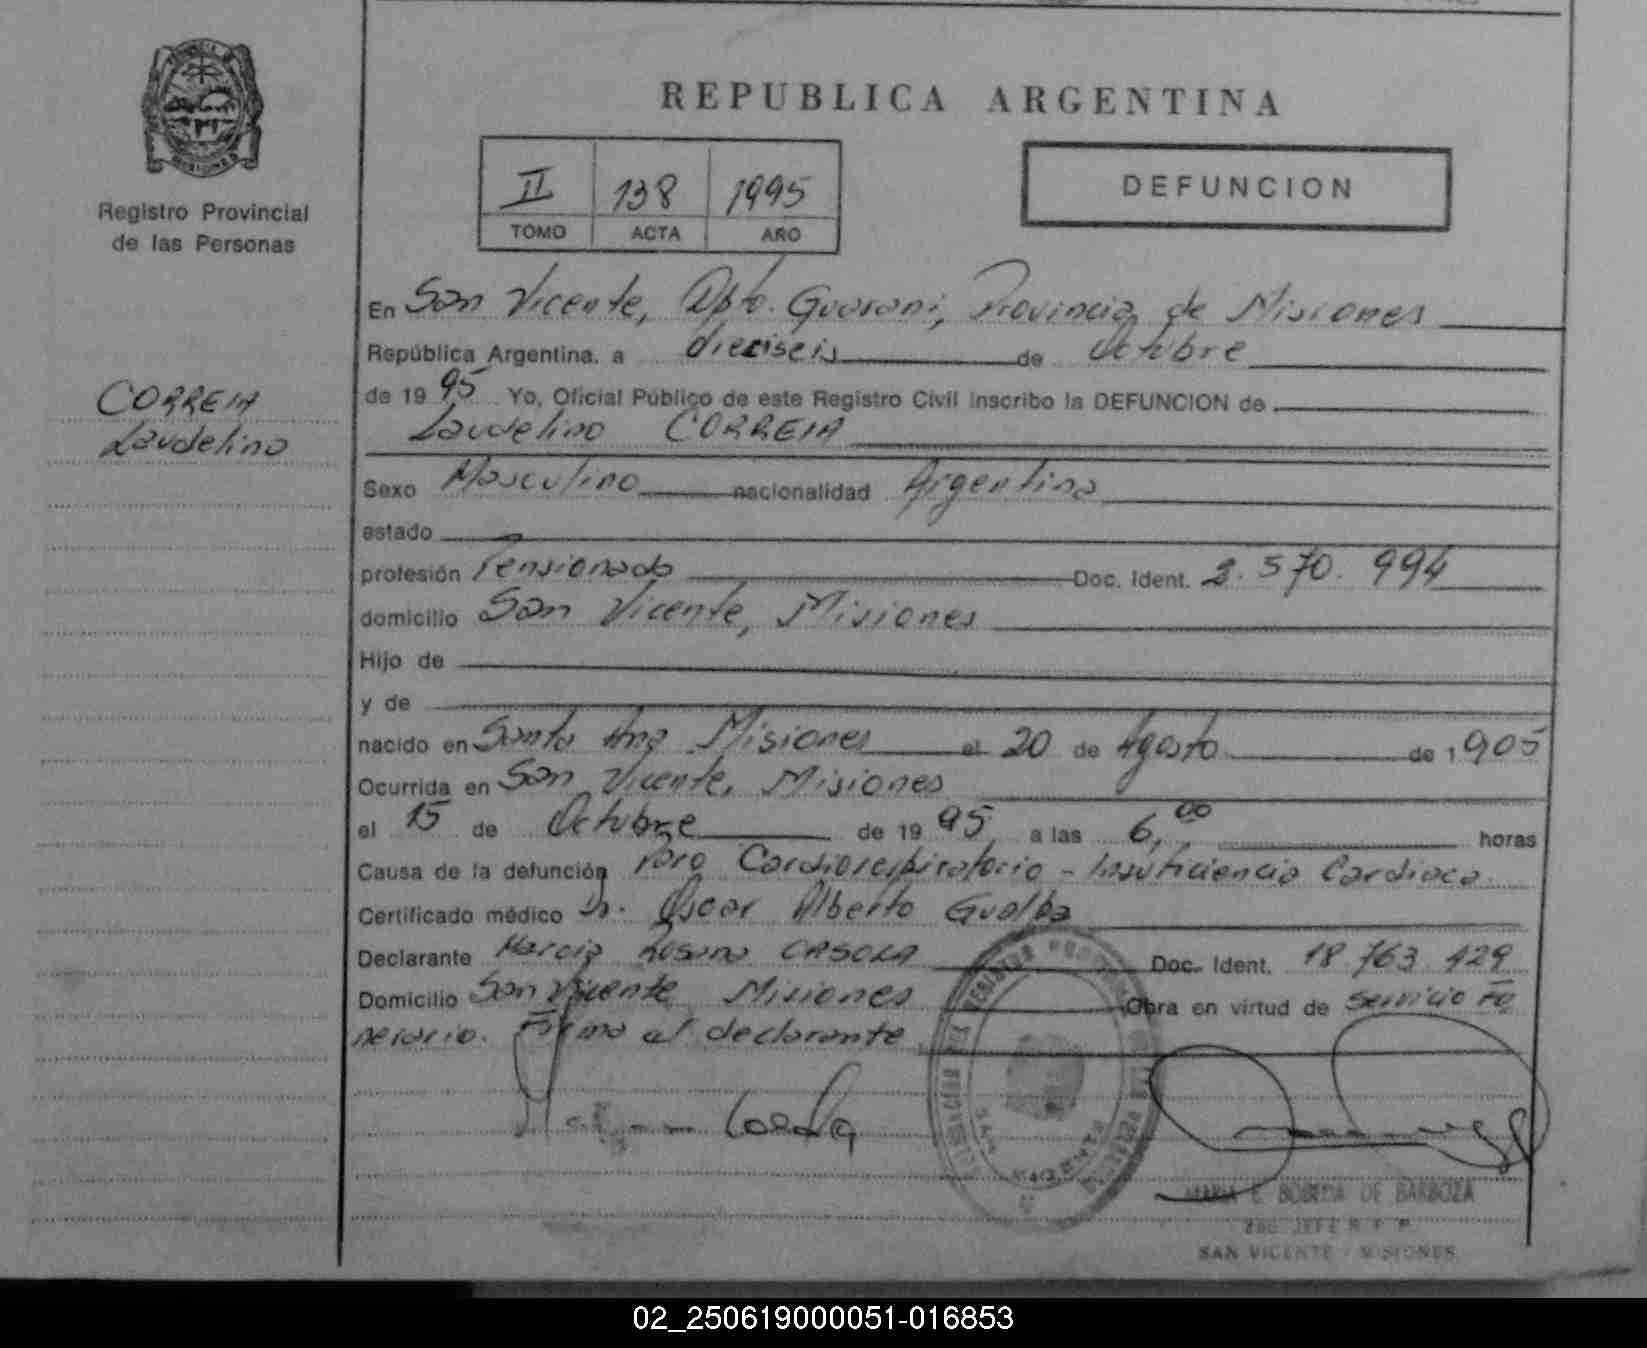 REPUBLICA ARGENTINA
II 138 1995
TOMO ACTA AÑO
DEFUNCION
Registro Provincial
de las Personas
CORREIA
Laudelino
En San Vicente, Dpto. Guarani, Provincia de Misiones
República Argentina, a dieciseis de Octubre
de 1995 Yo, Oficial Público de este Registro Civil inscribo la DEFUNCION de
Laudelino CORREIA
Sexo Masculino nacionalidad Argentina
estado
profesión Pensionado Doc. Ident. 2.570.994
domicilio San Vicente, Misiones
Hijo de
y de
nacido en Santa Ana Misiones el 20 de Agosto de 1905
Ocurrida en San Vicente, Misiones
el 15 de Octubre de 1995 a las 6,00 horas
Causa de la defunción Paro Cardiorespiratorio - Insuficiencia Cardiaca
Certificado médico Dr. Oscar Alberto Gualba
Declarante Marcia Rosana CASOLA Doc. Ident. 18.763.429
Domicilio San Vicente Misiones Obra en virtud de servicio Fu
nerario. Firma el declarante
SAN VICENTE
MARIA E. BOBEDA DE BARBOZA
2do JEFE R. P. P.
SAN VICENTE - MISIONES
02_250619000051-016853